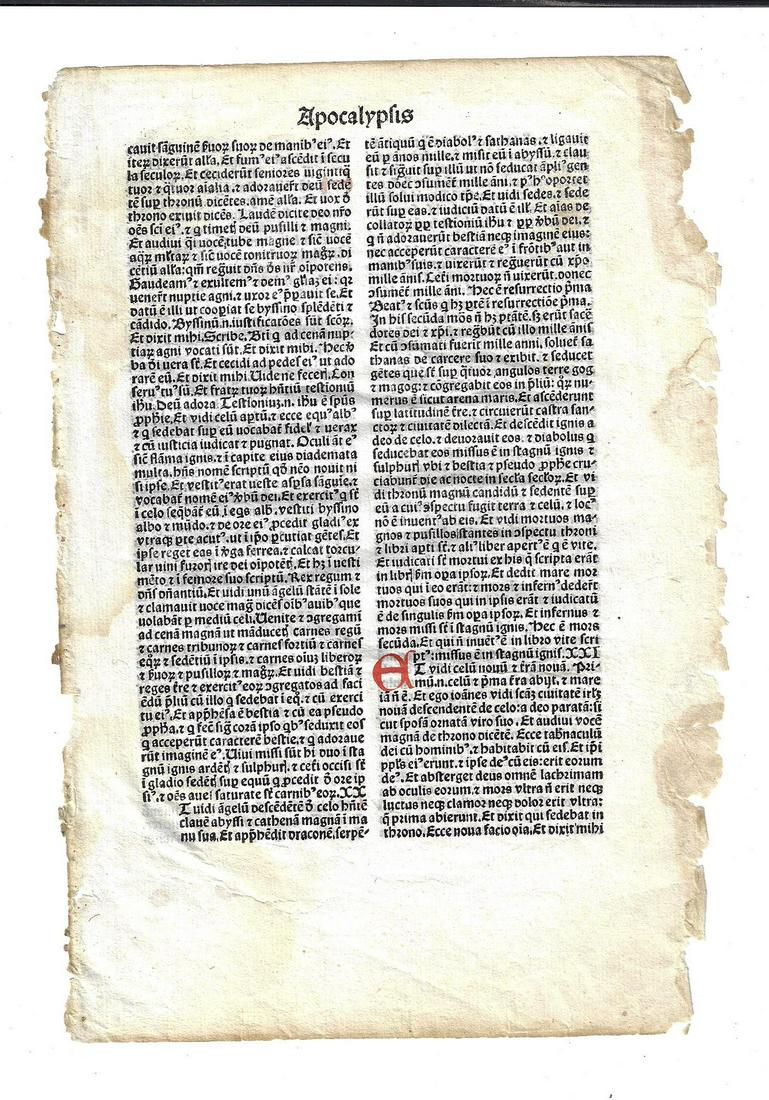 Apocalypsis
cauit sãguinẽ ſuoꝝ ſuoꝝ de manibꝰ eiꝰ. Et
iteꝝ dixerũt alľa. Et fumꝰ eiꝰ aſcẽdit ĩ ſecu
la ſeculoꝝ. Et ceciderũt ſeniores uigintiq̃
tuor ⁊ q̃tuor aĩalia. ⁊ adorauert̃ deũ ſede
tẽ ſuꝑ thronũ dicẽtes. amẽ alľa. Et uox ð
throno exiuit dicẽs. Laudẽ dicite deo nr̃o
oẽs ſci eiꝰ. ⁊ q timetꝭ deũ puſilli ⁊ magni.
Et audiui q̃ſi uocẽ tube magne ⁊ ſic̃ uocẽ
aqꝝ ml̃taꝝ ⁊ ſic̃ uocẽ tonitruoꝝ magꝝ. di
cẽtiũ alľa: qm̃ regͣuit dñs ðs nr̃ oĩpotens.
Gaudeamꝰ ⁊ exultemꝰ ⁊ demꝰ gľiaꝫ ei: qꝛ
uenert̃ nuptie agni. ⁊ uxor eꝰ p̃ꝑauit ſe. Et
datũ ẽ illi ut coopiat ſe byſſino ſplẽdẽti ⁊
cãdido. Byſſinũ .n. iuſtificatões ſũt ſcoꝝ.
Et dixit mihi. Scribe. Bti q ad cenã nup-
tiaꝝ agni vocati ſũt. Et dixit mihi. Hec ṽ
ba ði uera ſt̃. Et cecidi ad pedes eiꝰ ut ado
rarẽ eũ. Et dixit mihi. Uide ne fecerꝭ. Con
ſeruꝰ tuꝰ ſũ. Et fratꝝ tuoꝝ hñtiũ teſtioniũ
ihũ. Deũ adora. Teſtioniũ .n. ihũ ẽ ſpũs
ꝓphie. Et vidi celũ aptũ. ⁊ ecce equꝰ albꝰ
⁊ q ſedebat ſuꝑ eũ uocabať fidelꝭ ⁊ uerax
⁊ cũ iuſticia iudicat ⁊ pugnat. Oculi ãt eꝰ
ſic̃ flãma ignis. ⁊ ĩ capite eius diademata
multa. hñs nomẽ ſcriptũ qð nẽo nouit ni
ſi ipſe. Et veſtitꝰ erat ueſte aſꝑſa ſãguĩe. ⁊
vocabať nomẽ eiꝰ ṽbũ dei. Et exercitꝰ q ſt̃
ĩ celo ſeq̃bãť eũ ĩ eqs albꝭ. veſtiti byſſino
albo ⁊ mũdo. ⁊ de ore eiꝰ ꝓcedit gladiꝰ ex
vtraqꝫ ꝑte acutꝰ. ut ĩ ip̃o ꝑcutiat gẽtes. Et
ipſe reget eas ĩ ṽga ferrea. ⁊ calcat torcu-
lar uini furorꝭ ire dei oĩpotẽtꝭ. Et hꝫ ĩ ueſti
mẽto ⁊ ĩ femore ſuo ſcriptũ. Rex regum ⁊
dñs dñantiũ. Et uidi unũ ãgelũ ſtãtẽ ĩ ſole
⁊ clamauit uoce magͣ dicẽs oĩbꝰ auibꝰ que
uolabãt ꝑ mediũ celi. Uenite ⁊ ꝯgregami
ad cenã magnã ut mãducetꝭ carnes regũ
⁊ carnes tribunoꝝ ⁊ carnes fortiũ ⁊ carnes
eqꝝ ⁊ ſedẽtiũ ĩ ipſis. ⁊ carnes oĩuꝫ liberoꝝ
⁊ ſuoꝝ ⁊ puſilloꝝ ⁊ magꝝ. Et uidi beſtiã ⁊
reges tr̃e ⁊ exercitꝰ eoꝝ ꝯgregatos ad faci
ẽdũ p̃liũ cũ illo q ſedebat ĩ eq̃. ⁊ cũ exerci
tu eiꝰ. Et app̃hẽſa ẽ beſtia ⁊ cũ ea pſeudo
ꝓphͣ. ⁊ q fec̃ ſigͣ corã ipſo qbꝰ ſeduxit eos
q acceperũt caracterẽ beſtie. ⁊ q adoraue
rũt imaginẽ eꝰ. Uiui miſſi ſũt hi duo ĩ ſta
gnũ ignis ardẽtꝭ ⁊ ſulphurꝭ. ⁊ ceťi occiſi ſt̃
ĩ gladio ſedẽtꝭ ſuꝑ equũ q ꝓcedit ð ore ip
ſiꝰ. ⁊ oẽs aues ſaturate ſt̃ carnibꝰ eoꝝ. XX
T uidi ãgelũ deſcẽdẽtẽ ð celo hñtẽ
clauẽ abyſſi ⁊ cathenã magnã ĩ ma
nu ſua. Et app̃hẽdit draconẽ. ſerpẽ-
tẽ ãtiquũ q ẽ diabolꝰ ⁊ ſathanas. ⁊ ligauit
eũ ꝑ ãnos mille. ⁊ miſit eũ ĩ abyſſũ. ⁊ clau
ſit ⁊ ſiguit ſuꝑ illũ ut nõ ſeducat ãpliꝰ gen
tes donec ꝯſumẽť mille ãni. ⁊ pꝰ hͦ oportet
illũ ſolui modico tp̃e. Et uidi ſedes. ⁊ ſede
rũt ſuꝑ eas. ⁊ iudiciũ datũ ẽ illꝭ. Et aĩas de
collatoꝝ ꝓꝑ teſtioniũ ihũ ⁊ ꝓꝑ ṽbũ dei. ⁊
q ñ adorauerũt beſtiã neqꝫ imaginẽ eius:
nec acceperũt caracterẽ eꝰ ĩ frõtibꝰ aut in
manibꝰ ſuis. ⁊ uixerũt ⁊ regͣuerũt cũ xp̃o
mille ãnis. Ceťi mortuoꝝ ñ uixerũt. donec
ꝯſumẽť mille ãni. Hec ẽ reſurrectio p̃ma
Beatꝰ ⁊ ſcũs q hꝫ ꝑtẽ ĩ reſurrectiõe p̃ma.
In his ſecũda mõs ñ hꝫ ptãtẽ. ſꝫ erũt ſacẽ
dotes dei ⁊ xp̃i. ⁊ regͣbũt cũ illo mille ãnis
Et cũ ꝯſumati fuerit mille anni. ſolueť ſa
thanas de carcere ſuo ⁊ exibit. ⁊ ſeducet
gẽtes que ſt̃ ſuꝑ q̃tuor angulos terre gog
⁊ magog: ⁊ cõgregabit eos in p̃liũ: qꝝ nu-
merus ẽ ſicut arena maris. Et aſcẽderunt
ſuꝑ latitudinẽ tr̃e. ⁊ circuierũt caſtra ſan-
ctoꝝ ⁊ ciuitatẽ dilectã. Et deſcẽdit ignis a
deo de celo. ⁊ deuorauit eos. ⁊ diabolus q
ſeducebat eos miſſus ẽ in ſtagnũ ignis ⁊
ſulphurꝭ vbi ⁊ beſtia ⁊ pſeudo ꝓphe cru-
ciabunť die ac nocte in ſecľa ſecľoꝝ. Et vi
di thronũ magnũ candidũ ⁊ ſedentẽ ſuꝑ
eũ a cuiꝰ ꝯſpectu fugit terra ⁊ celũ. ⁊ locꝰ
nõ ẽ inuentꝰ ab eis. Et vidi mortuos ma-
gnos ⁊ puſillos ſtantes in ꝯſpectu throni
⁊ libri apti ſt̃. ⁊ aliꝰ liber apertꝰ ẽ q ẽ vite.
Et iudicati ſt̃ mortui ex his q̃ ſcripta erãt
in librꝭ ẜm oꝑa ipſoꝝ. Et dedit mare mor
tuos qui ĩ eo erãt: ⁊ mors ⁊ infernꝰ dedert̃
mortuos ſuos qui in ipſis erãt. ⁊ iudicatũ
ẽ de ſingulis ẜm oꝑa ipſoꝝ. Et infernus ⁊
mors miſſi ſt̃ ĩ ſtagnũ ignis. Hec ẽ mors
ſecũda. Et qui ñ inuẽtꝰ ẽ in libro vite ſcri
E ptꝰ: miſſus ẽ in ſtagnũ ignis. XXI
T vidi celũ nouũ ⁊ tr̃ã nouã. Pri-
mũ .n. celũ ⁊ p̃ma tr̃a abijt. ⁊ mare
iã ñ ẽ. Et ego ioãnes vidi ſcãꝫ ciuitatẽ irľꝫ
nouã deſcendentẽ de celo: a deo paratã: ſi
cut ſpoſã ornatã viro ſuo. Et audiui vocẽ
magnã de throno dicẽtẽ. Ecce tabñaculũ
dei cũ hominibꝰ. ⁊ habitabit cũ eis. Et ip̃i
ppľs eiꝰ erunt. ⁊ ipſe deꝰ cũ eis: erit eorum
deꝰ. Et abſterget deus omnẽ lachrimam
ab oculis eorum. ⁊ mors vltra ñ erit neqꝫ
luctus neqꝫ clamor neqꝫ dolor erit vltra:
q̃ prima abierunt. Et dixit qui ſedebat in
throno. Ecce noua facio oĩa. Et dixit mihi